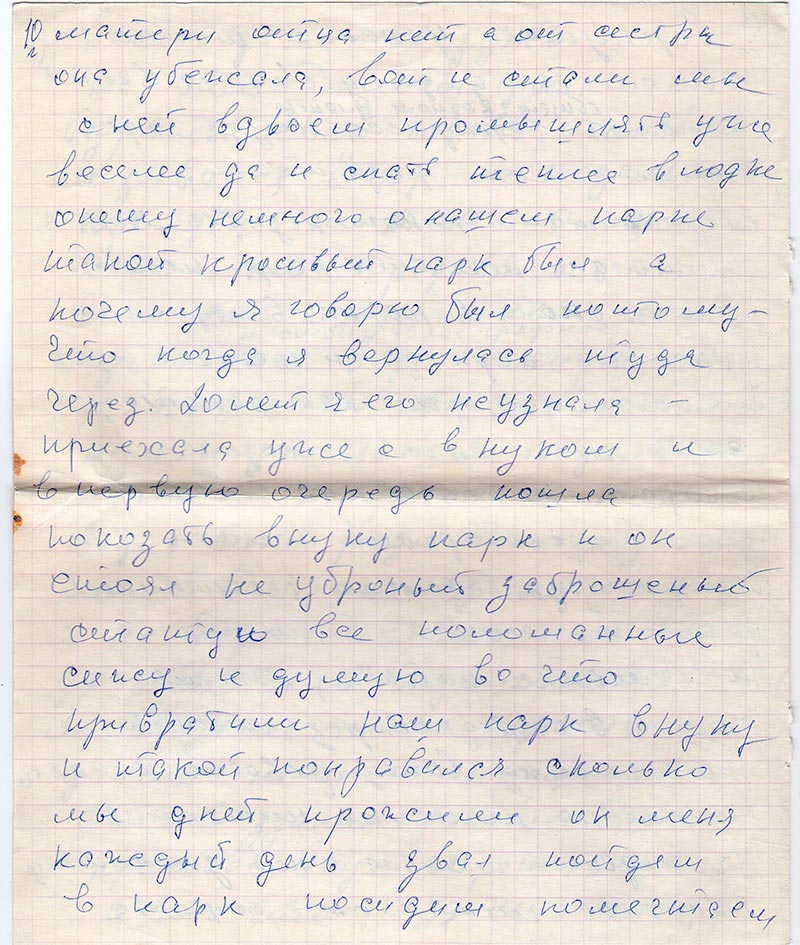 10 матери отца нет а от сестры
она убежала, вот и стали мы
с ней вдвоем промышлять уже
веселее да и спать теплее в лодке
опешу немного о нашем парке
такой красивый парк был а
почему я говорю был потому-
что когда я вернулась туда
через. 20 лет я его неузнала -
приехала уже с внуком и
в первую очередь пошла
показать внуку парк и он
стоял не уброный заброшеный
статую все поломанные
сижу и думую во что
привратили наш парк внуку
и такой понравился сколько
мы дней прожили он меня
каждый день звал пойдем
в парк посидим помечтаем